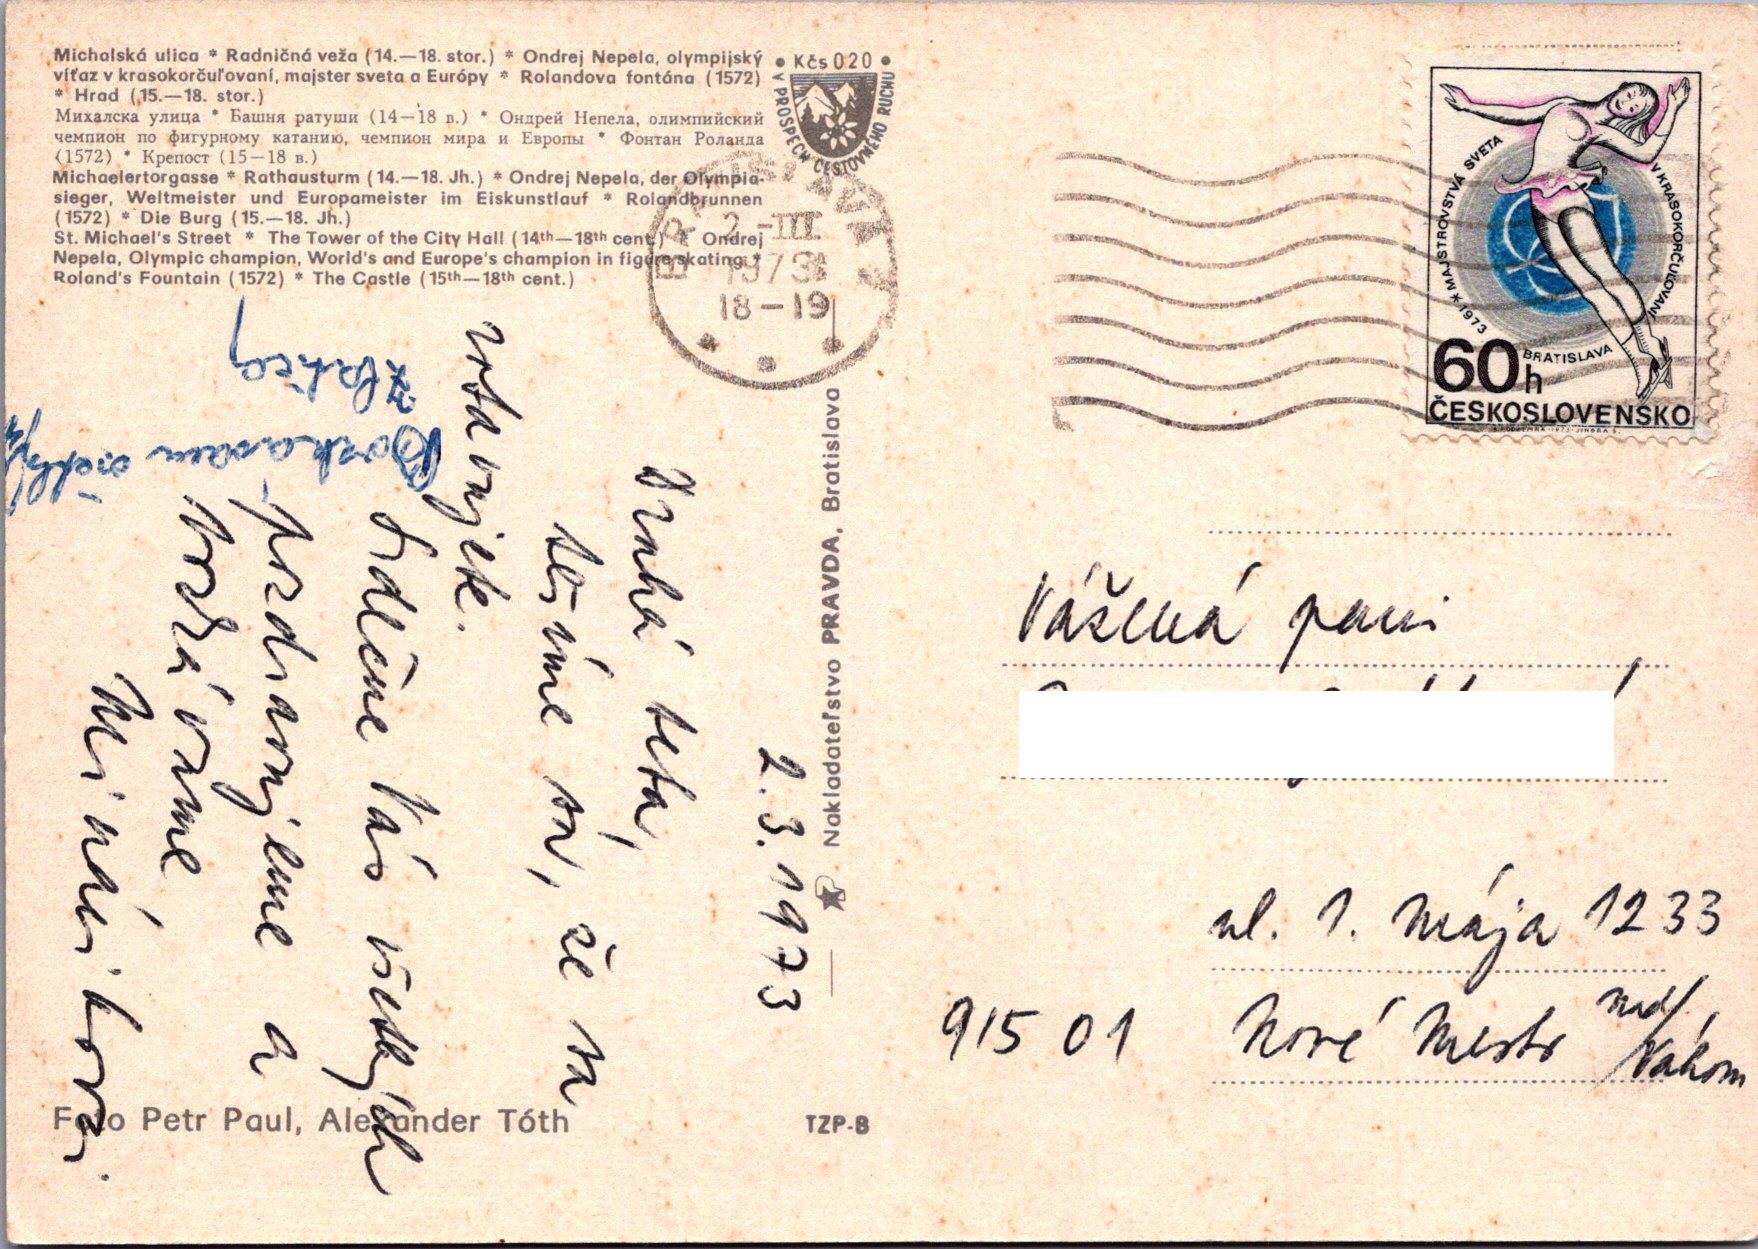 Michalská ulica * Radničná veža (14.—18. stor.) * Ondrej Nepela, olympijský
víťaz v krasokorčuľovaní, majster sveta a Európy * Rolandova fontána (1572)
* Hrad (15.—18. stor.)
Михалска улица * Башня ратуши (14—18 в.) * Ондрей Непела, олимпийский
чемпион по фигурному катанию, чемпион мира и Европы * Фонтан Роланда
(1572) * Крепост (15—18 в.)
Michaelertorgasse * Rathausturm (14.—18. Jh.) * Ondrej Nepela, der Olympia-
sieger, Weltmeister und Europameister im Eiskunstlauf * Rolandbrunnen
(1572) * Die Burg (15.—18. Jh.)
St. Michael's Street * The Tower of the City Hall (14th—18th cent.) * Ondrej
Nepela, Olympic champion, World's and Europe's champion in figure skating *
Roland's Fountain (1572) * The Castle (15th—18th cent.)
• Kčs 020 •
V PROSPECH CESTOVNÉHO RUCHU
BRATISLAVA
2.-III.
1973
18-19
2.3.1973
Drahá teta,
tešíme sa, že sa
zotavujete.
Srdečne Vás všetkých
pozdravujeme a
bozkávame
Nakladateľstvo PRAVDA, Bratislava
Foto Petr Paul, Alexander Tóth
TZP-8
* MAJSTROVSTVÁ SVETA
V KRASOKORČUĽOVANÍ
* 1973
BRATISLAVA
60h
ČESKOSLOVENSKO
Vážená pani
ul. 1. mája 1233
915 01 Nové Mesto nad/Váhom